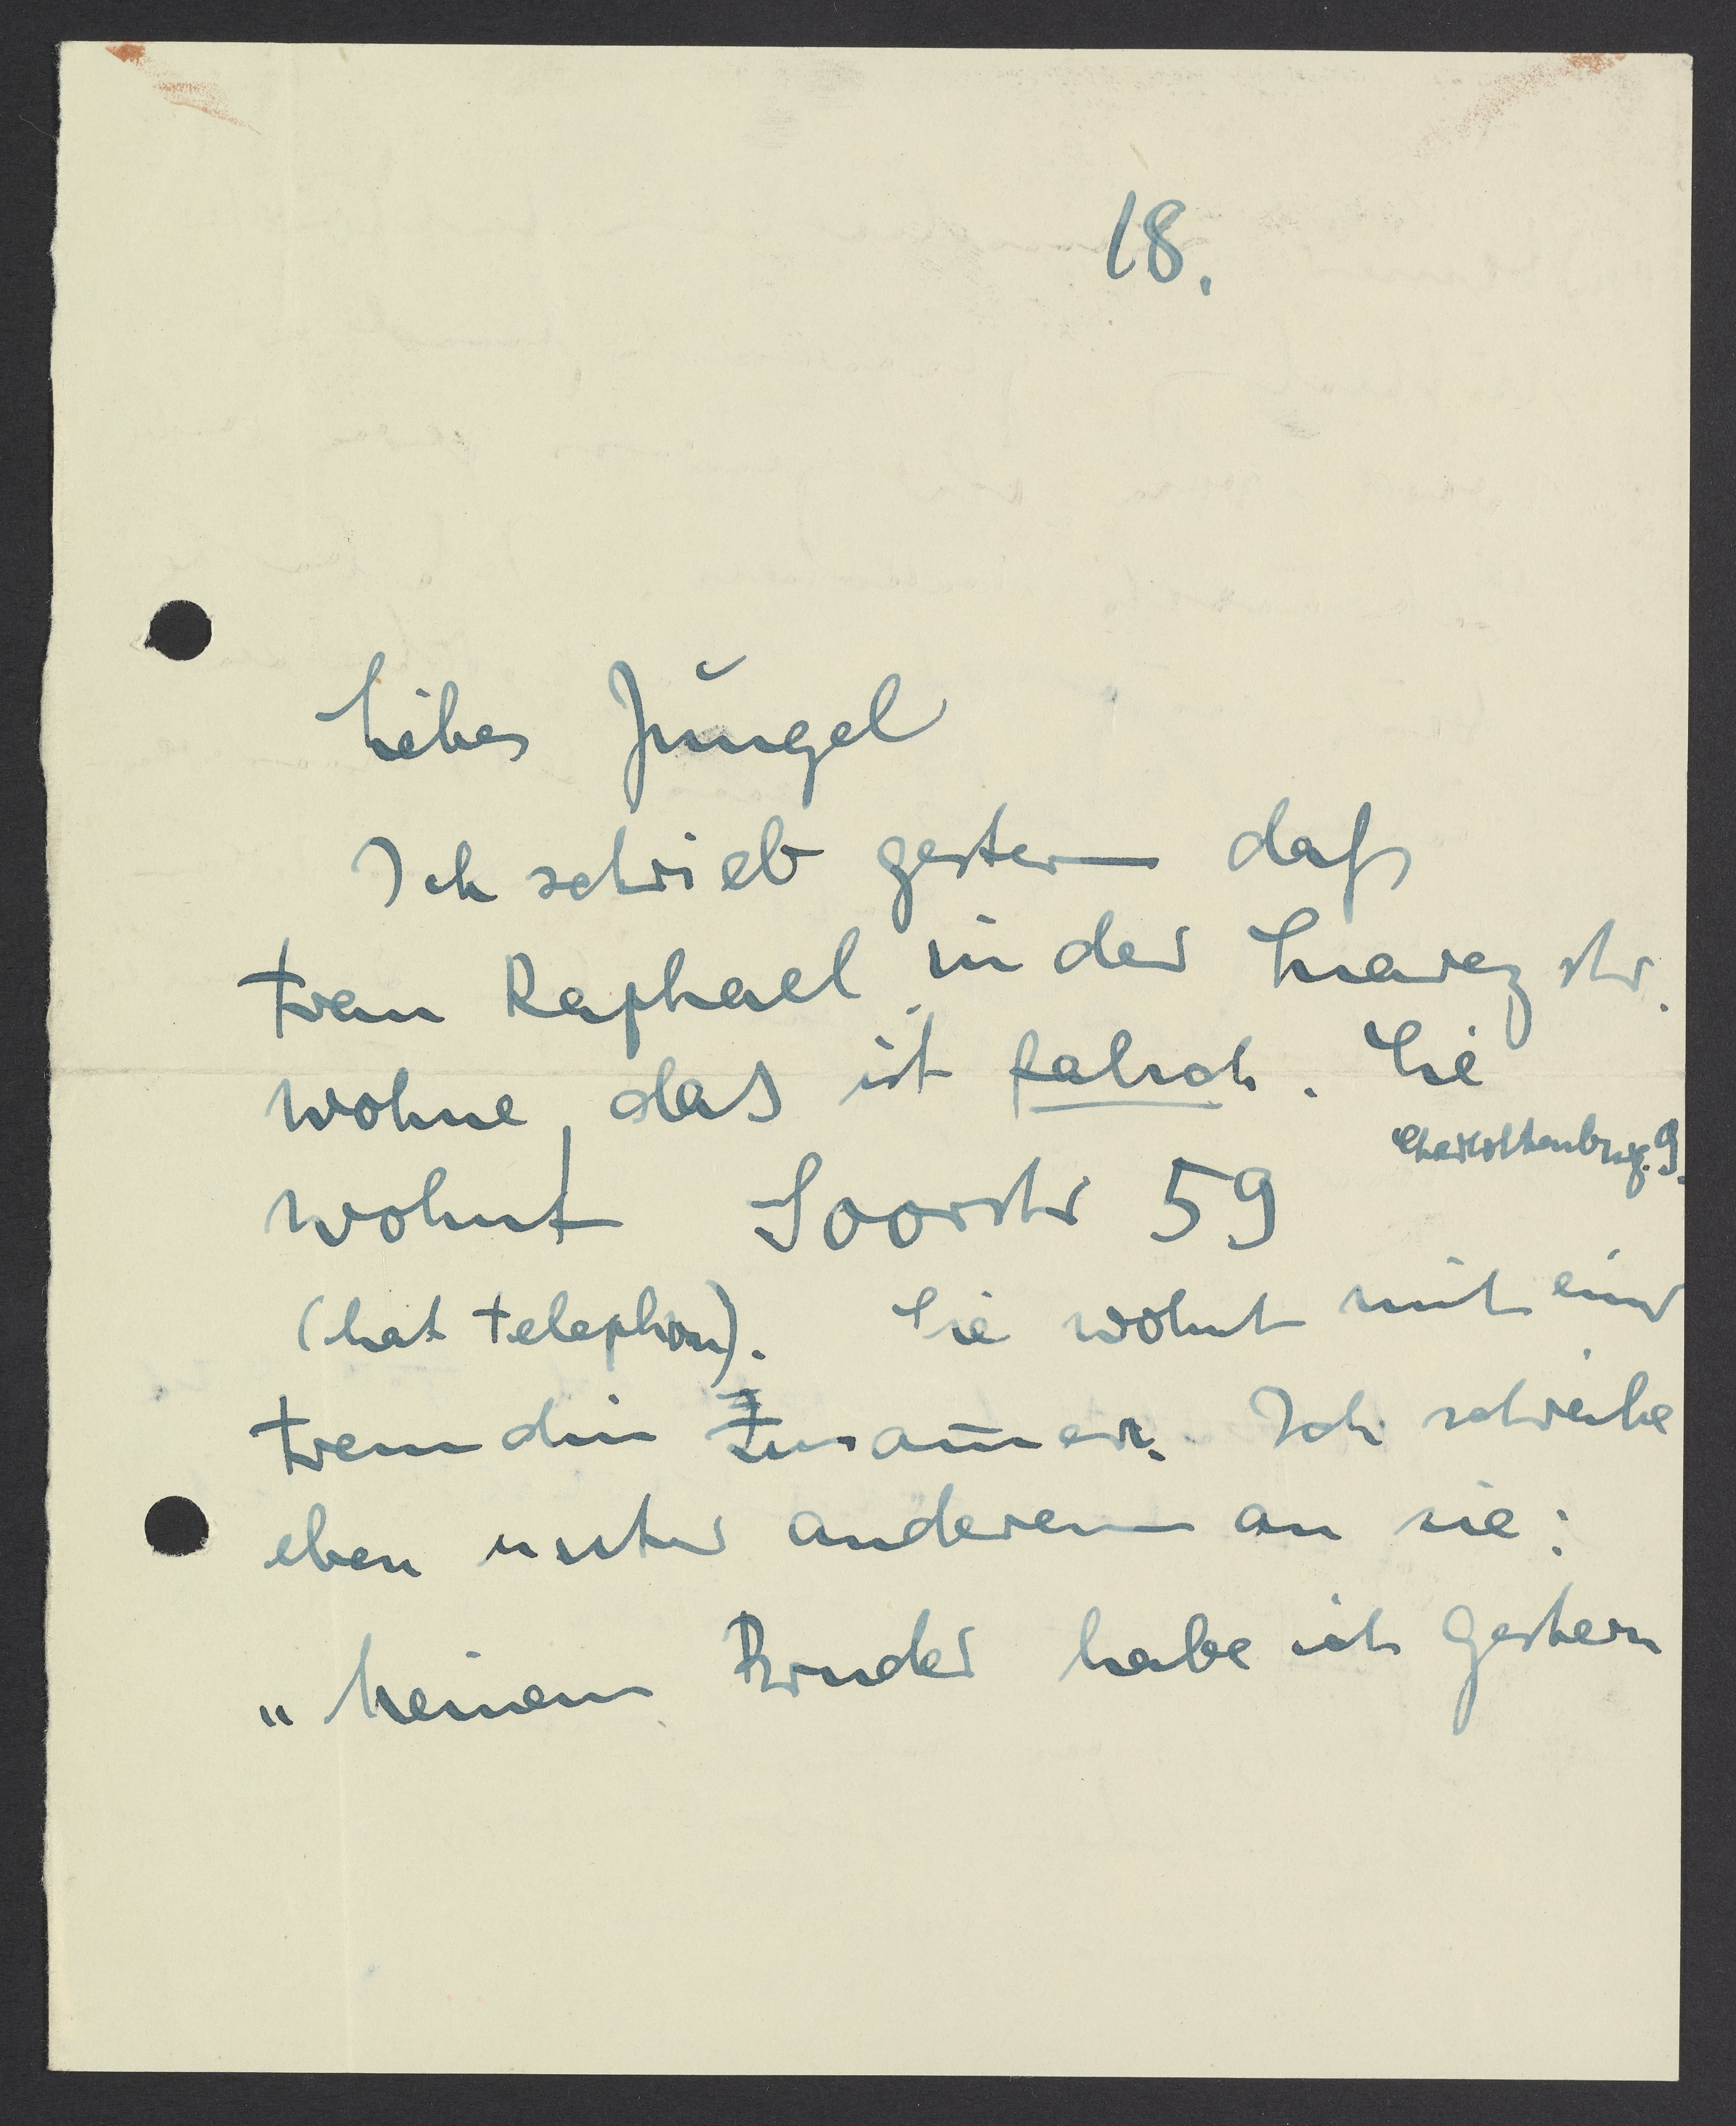 18.
Liebes Jüngel
Ich schrieb gestern daß
Frau Raphael in der Suarezstr.
wohne, das ist falsch. Sie
Charlottenburg. 9.
wohnt Soorstr 59
(hat telephon). Sie wohnt mit einer
Freundin Zusam̅en. Ich schreibe
eben unter anderem an sie:
„Meinem Bruder habe ich gestern